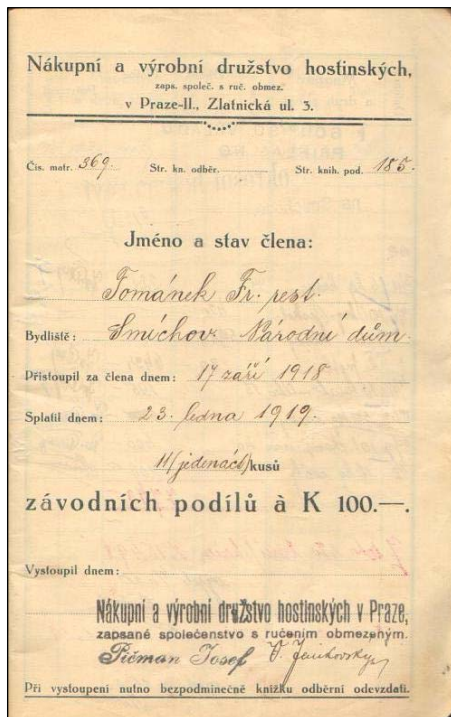 Nákupní a výrobní družstvo hostinských,
zaps. společ. s ruč. obmez.
v Praze-II., Zlatnická ul. 3.
Čís. matr. 369. Str. kn. odběr. Str. knih. pod. 185.
Jméno a stav člena:
Tománek Fr. rest.
Bydliště: Smíchov Národní dům.
Přistoupil za člena dnem: 17 září 1918
Splatil dnem: 23. ledna 1919.
11 (jedenáct) kusů
závodních podílů à K 100.—.
Vystoupil dnem:
Nákupní a výrobní družstvo hostinských v Praze,
zapsané společenstvo s ručením obmezeným.
Pičman Josef V. Jankovský
Při vystoupení nutno bezpodmínečně knížku odběrní odevzdati.